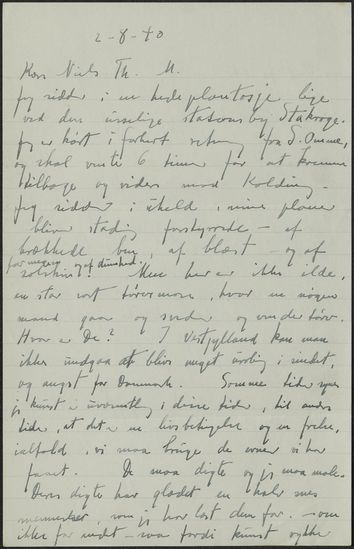 2-8-40
Kære Niels Th. M.
Jeg sidder i en hedeplantasje lige
ved den usselige stationsby Stakroge.
Jeg er kørt i forkert retning fra S. Omme,
og skal vente 6 timer for at komme
tilbage og videre mod Kolding.
Jeg sidder i uheld, mine planer
bliver stadig forstyrrede - af
brækkede ben, af blæst - og af
for megen og af dumhed
solskin! Men her er ikke ilde,
en stor sort tørvemose, hvor en nøgen
mand gaar og sveder og vender tørv.
Hvor er De? I Vestjylland kan man
ikke undgaa at blive meget urolig i sindet,
og angst for Danmark. Somme tider synes
jeg kunst er uvæsentlig i disse tider, til andre
tider, at det er en livsbetingelse og en frelse,
ialfald, vi maa bruge de evner vi har
faaet. De maa digte og jeg maa male.
Deres digte har glædet en halv snes
mennesker, som jeg har læst dem for - som
ikke før - saa fordi kunst